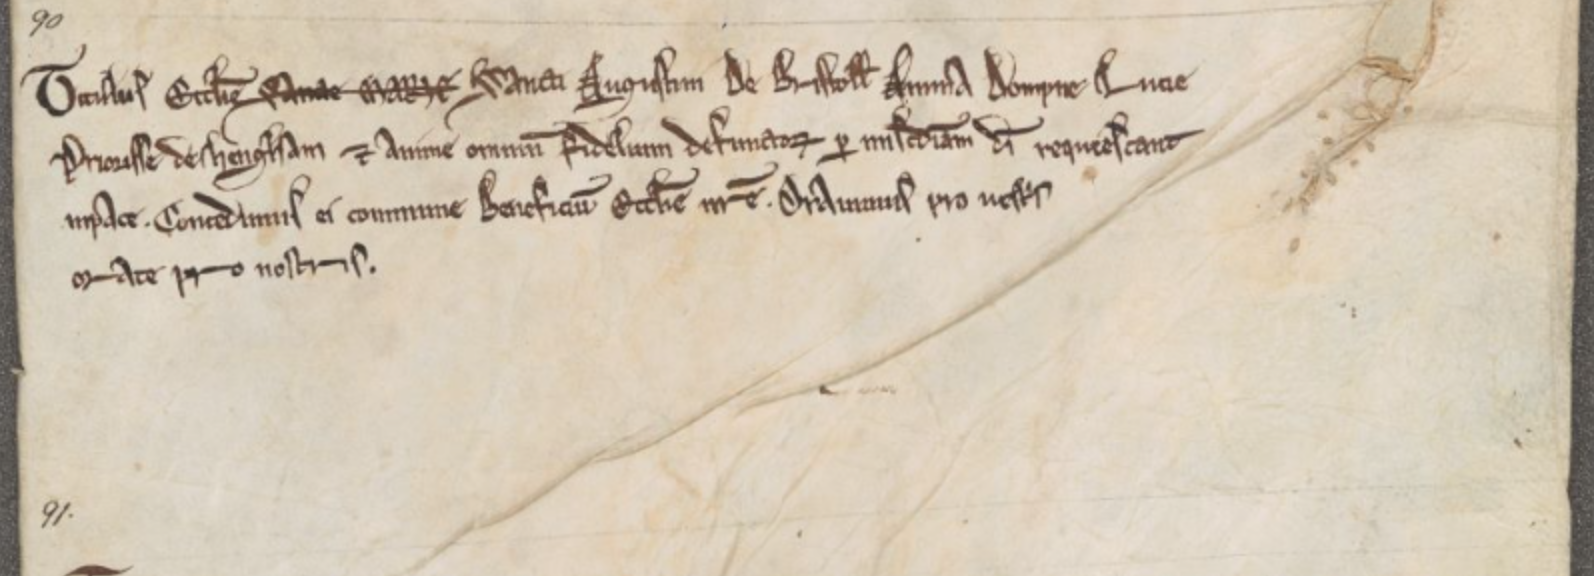 90
Titulus Ecclīe Sancte MARIE Sancti Augustini De Bristoll Anima Dompne Lucie
Priorisse de hengham ⁊ Anime omniū Fidelium defunctoꝝ ꝑ misc̄diam dī requiescant
inpace. Concedimus ei commune Beneficiū Ecclīe nr̄e. ORAmus pro vestris
orate pro nostris.
91.